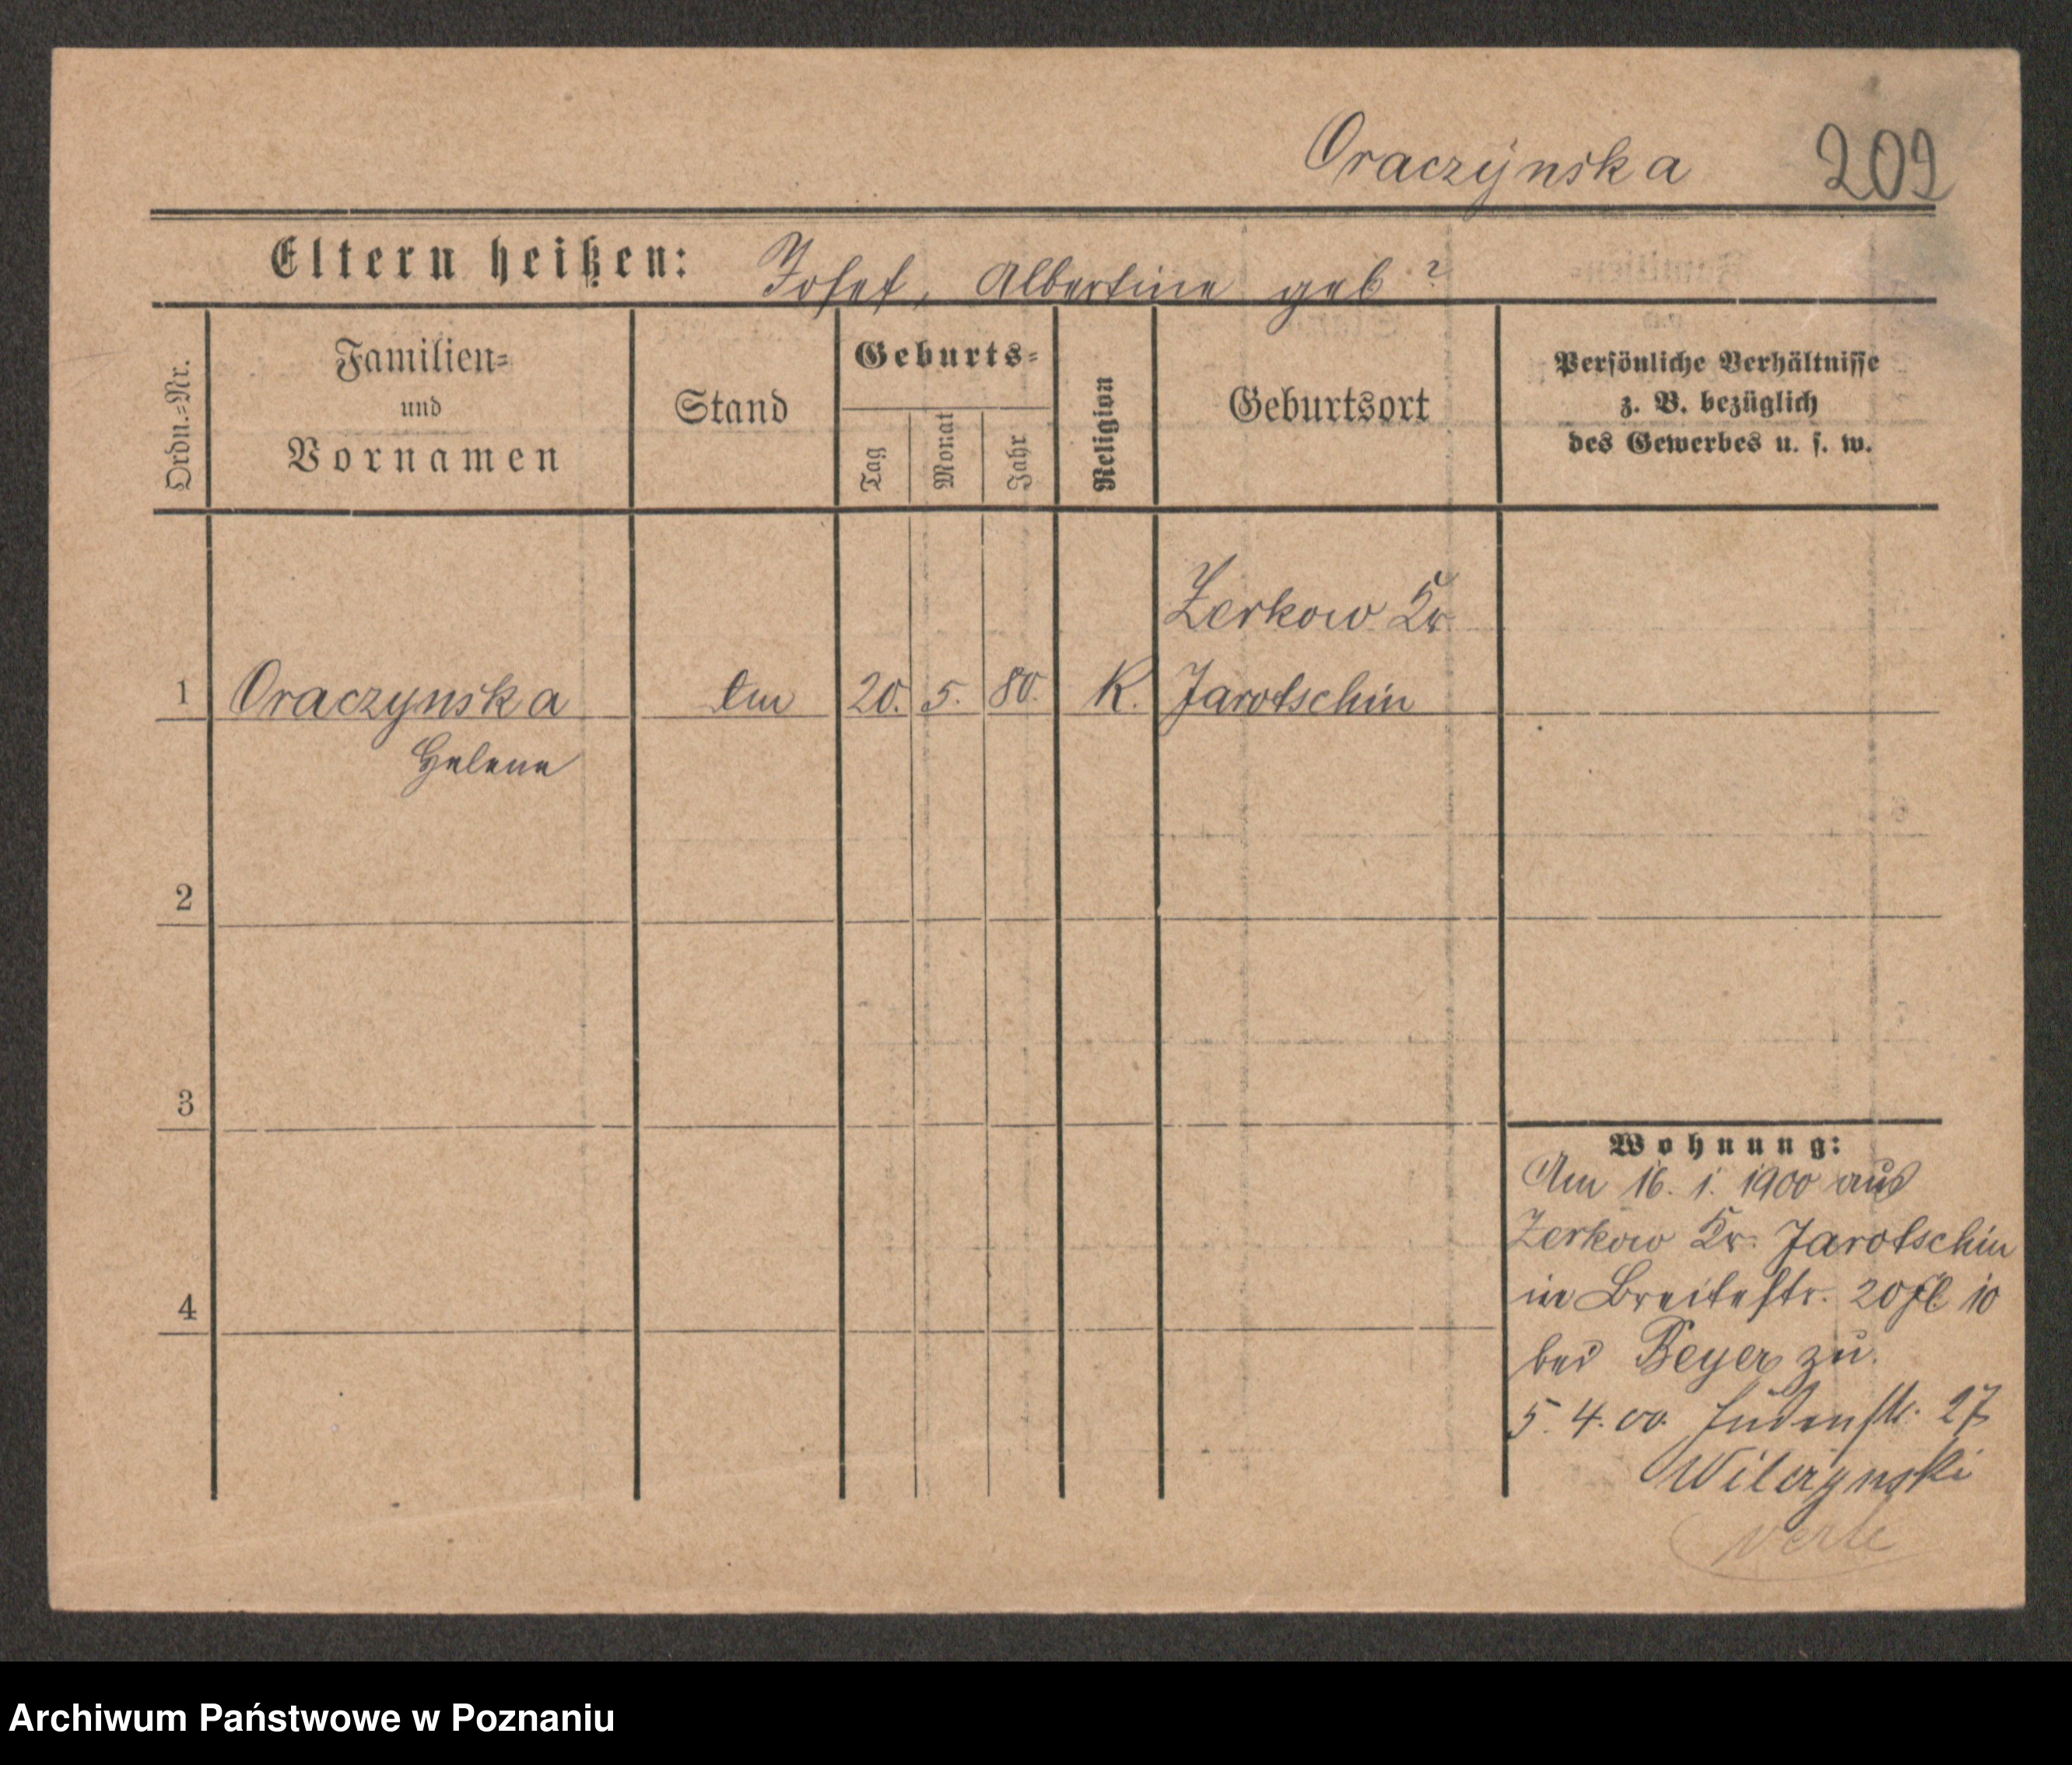 Oraczynska 202
Eltern heißen: Josef, Albertine geb ?
Ordn.=Nr.
Familien=
und
Vornamen
Stand
Geburts=
Tag
Monat
Jahr
Religion
Geburtsort
Persönliche Verhältnisse
z. B. bezüglich
des Gewerbes u. s. w.
Zerkow Kr.
1 Oraczynska 20. 5. 80. K. Jarotschin
Helene
2
3
4
Wohnung:
Am 16. 1. 1900 aus
Zerkow Kr. Jarotschin
in Breitestr. 20 10
bei Beyer zu.
5. 4. 00. Judenstr. 27
Wilczynski
Archiwum Państwowe w Poznaniu